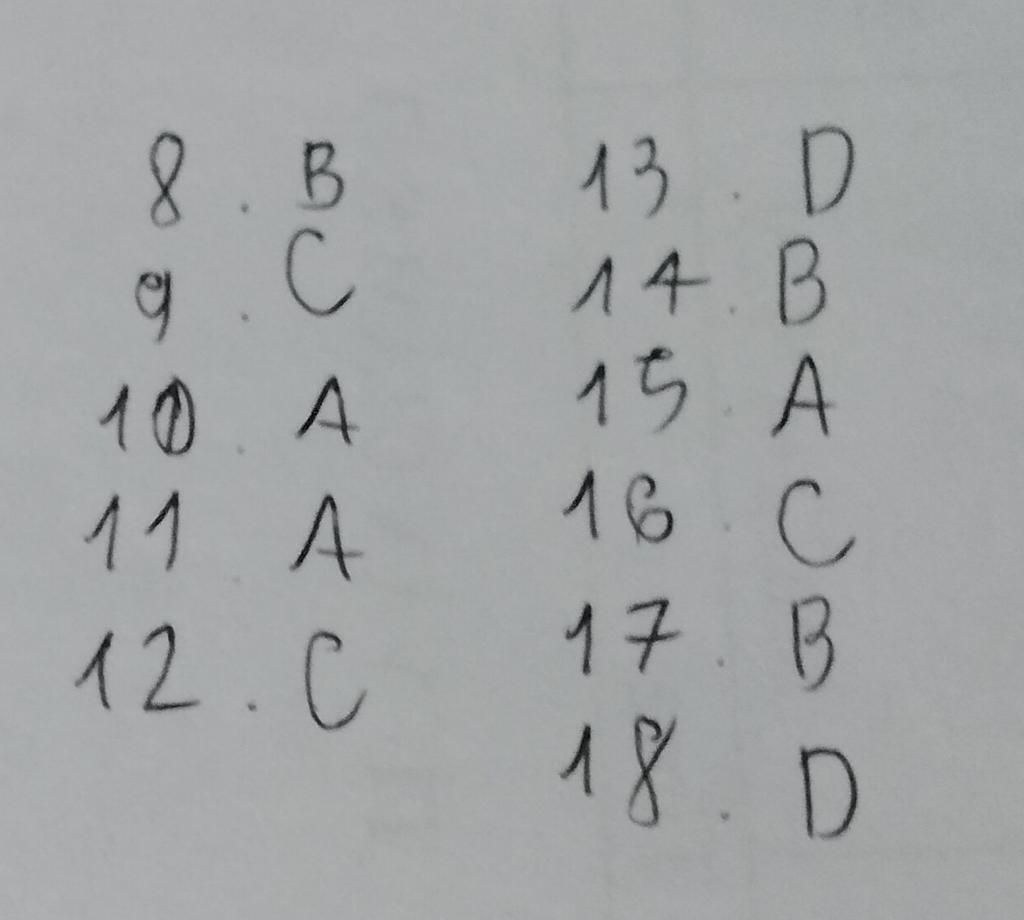 8. B
9. C
10. A
11. A
12. C
13. D
14. B
15. A
16. C
17. B
18. D